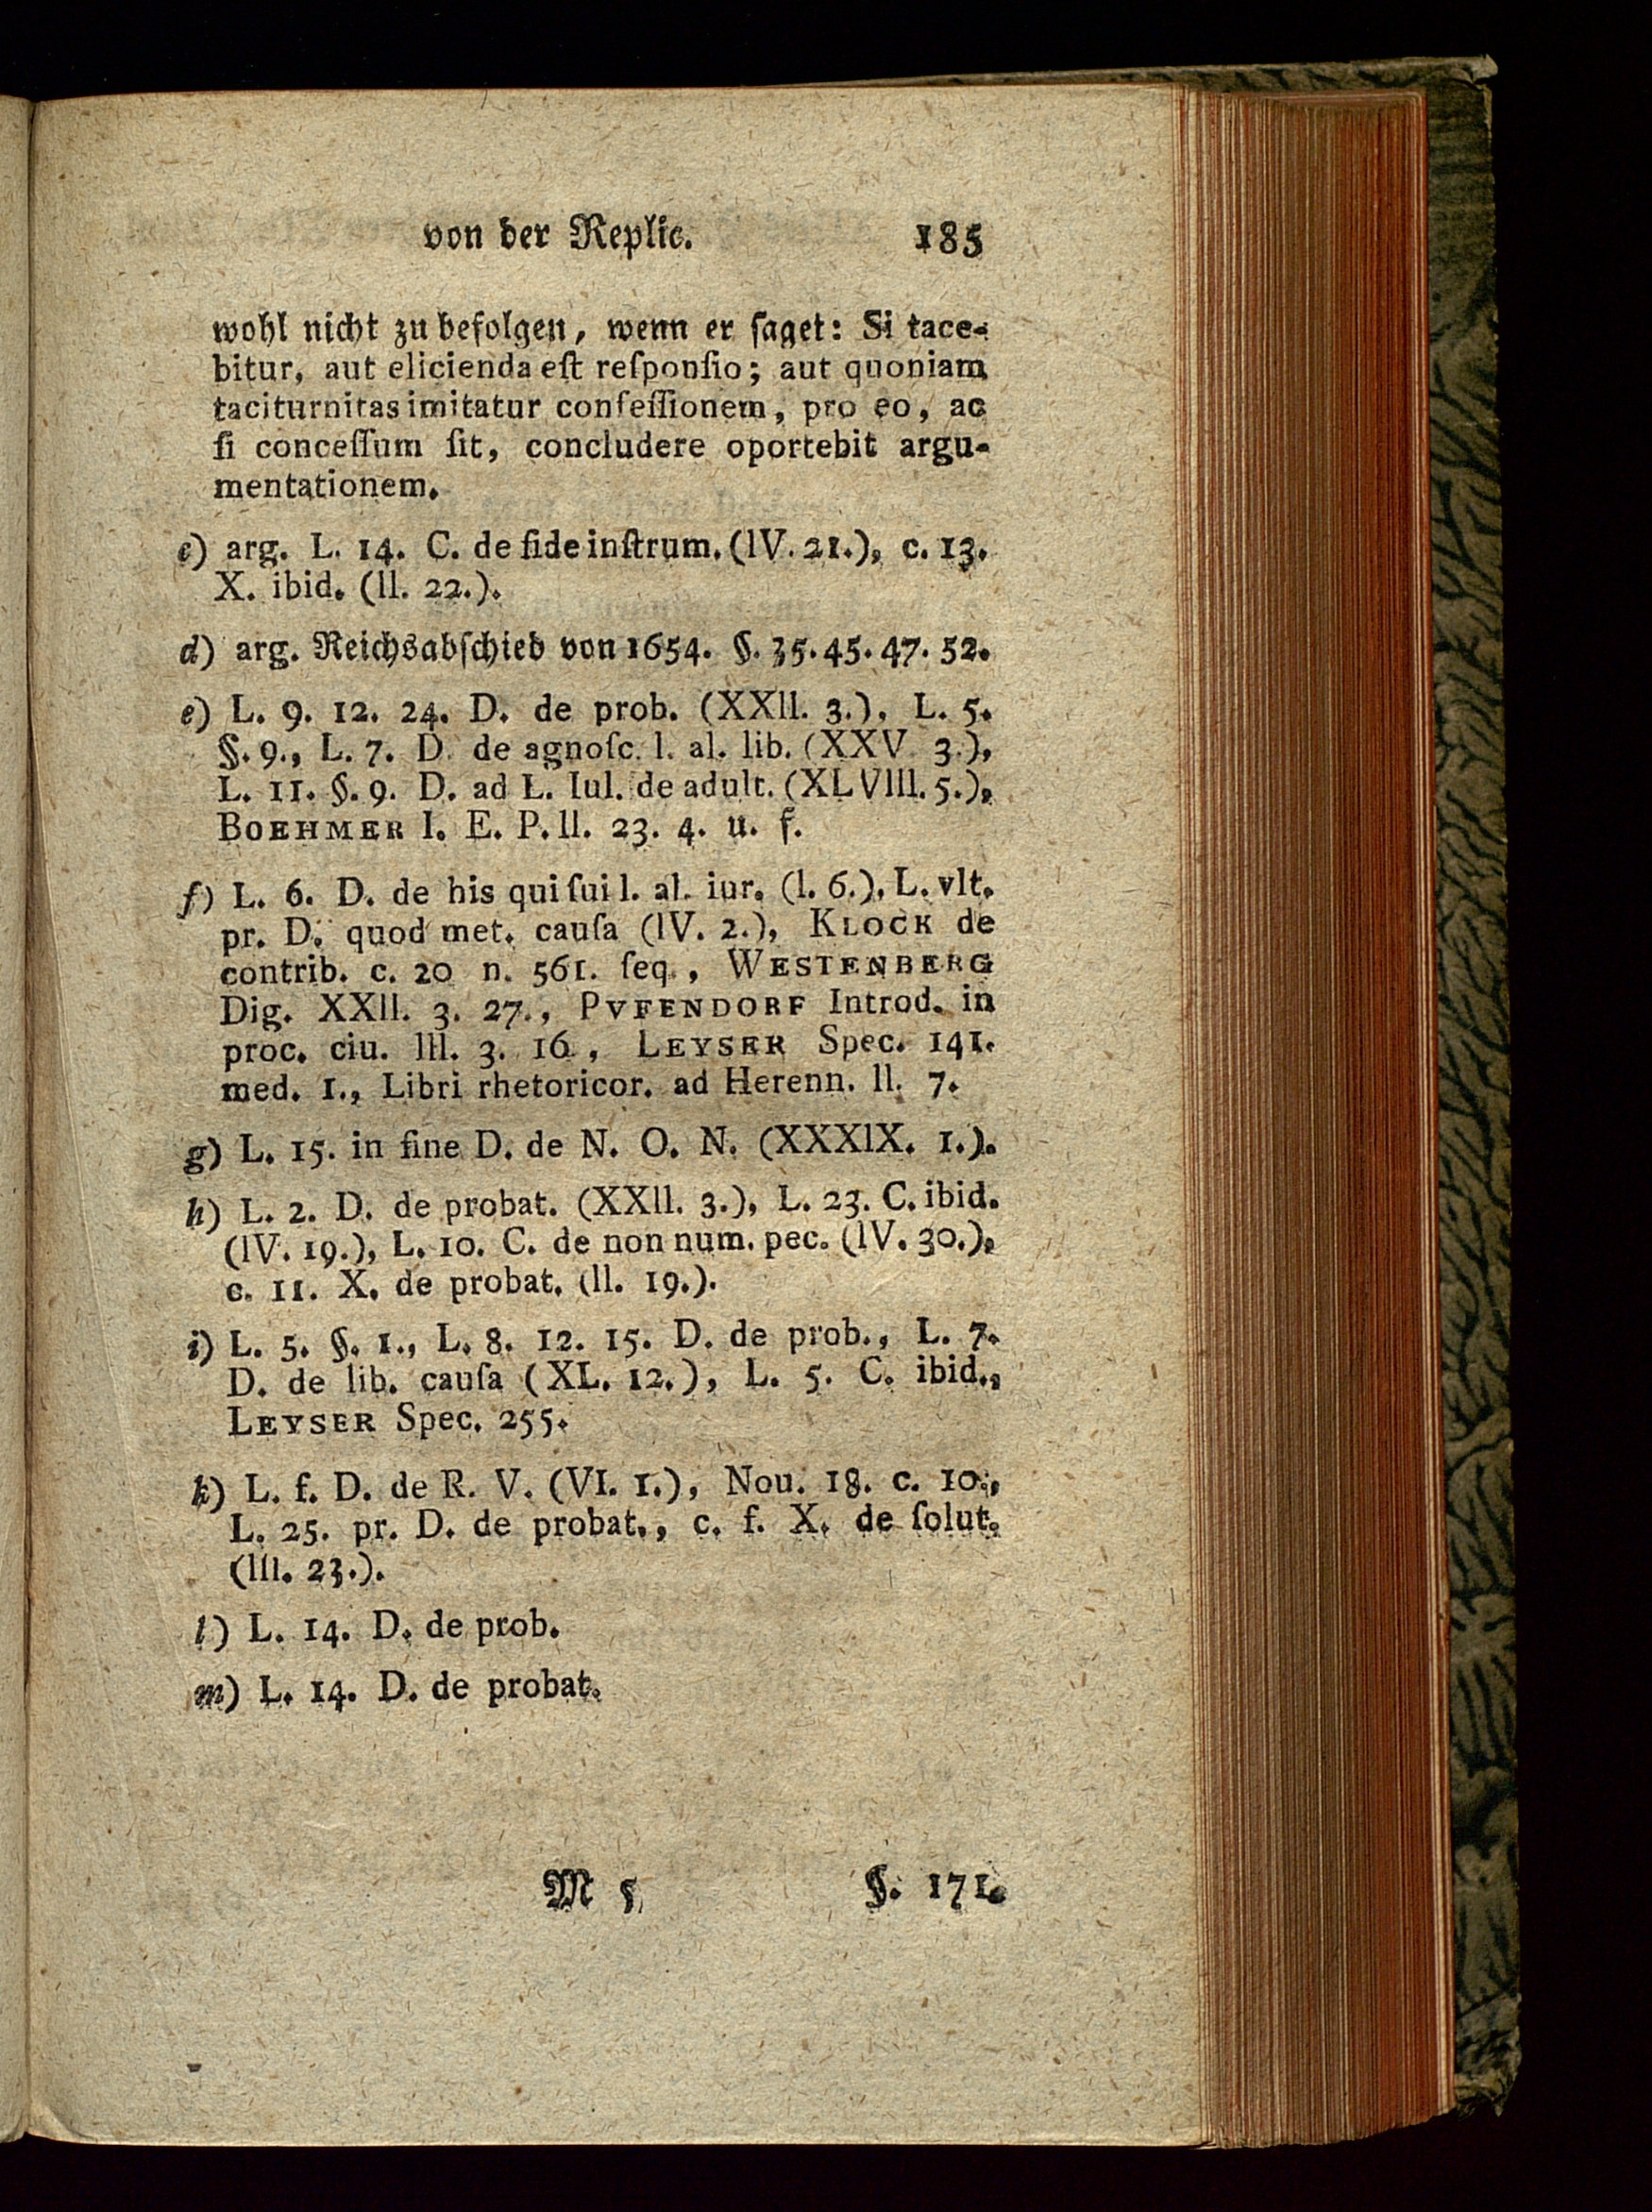 von der Replic. 185
wohl nicht zu befolgen, wenn er ſaget: Si tace-
bitur, aut elicienda eſt reſponſio; aut quoniam
taciturnitas imitatur confeſſionem, pro eo, ac
ſi conceſſum ſit, concludere oportebit argu-
mentationem.
c) arg. L. 14. C. de fide inſtrum. (lV. 21.), c. 13.
X. ibid. (ll. 22.).
d) arg. Reichsabſchied von 1654. §. 35. 45. 47. 52.
e) L. 9. 12. 24. D. de prob. (XXll. 3.), L. 5.
§. 9., L. 7. D. de agnoſc. l. al. lib. (XXV. 3.),
L. 11. §. 9. D. ad L. Iul. de adult. (XLVlll. 5.),
BOEHMER I. E. P. ll. 23. 4. u. f.
f) L. 6. D. de his qui ſui l. al. iur. (l. 6.), L. vlt.
pr. D. quod met. cauſa (lV. 2.), KLOCK de
contrib. c. 20 n. 561. ſeq., WESTENBERG
Dig. XXll. 3. 27., PVFENDORF Introd. in
proc. ciu. lll. 3. 16., LEYSER Spec. 141.
med. 1., Libri rhetoricor. ad Herenn. ll. 7.
g) L. 15. in fine D. de N. O. N. (XXXlX. 1.).
h) L. 2. D. de probat. (XXll. 3.), L. 23. C. ibid.
(lV. 19.), L. 10. C. de non num. pec. (lV. 30.),
c. 11. X. de probat. (ll. 19.).
i) L. 5. §. 1., L. 8. 12. 15. D. de prob., L. 7.
D. de lib. cauſa (XL. 12.), L. 5. C. ibid.,
LEYSER Spec. 255.
k) L. f. D. de R. V. (VI. 1.), Nou. 18. c. 10.,
L. 25. pr. D. de probat., c. f. X. de ſolut.
(lll. 23.).
l) L. 14. D. de prob.
m) L. 14. D. de probat.
M 5 §. 171.